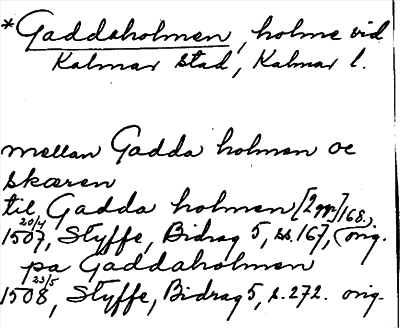 *Gaddaholmen, holme vid
Kalmar stad, Kalmar l.
mellan Gadda holmen oc
skæren
til Gadda holmen [2 ggr] 168.)
20/4
1507, Styffe, Bidrag 5, ss. 167, (orig.
pa Gaddaholmen
23/5
1508, Styffe, Bidrag 5, s. 272. orig.